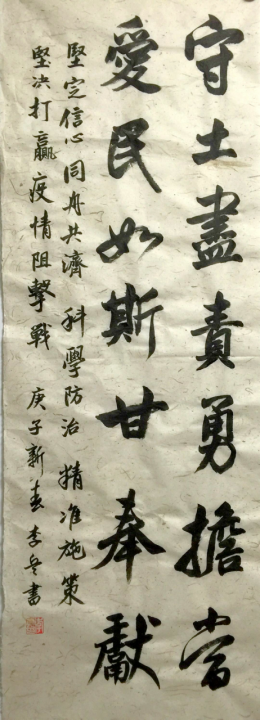 守土盡責勇擔當
愛民如斯甘奉獻
堅定信心同舟共濟 科學防治 精准施策
堅决打贏疫情阻擊戰 庚子新春李兵書